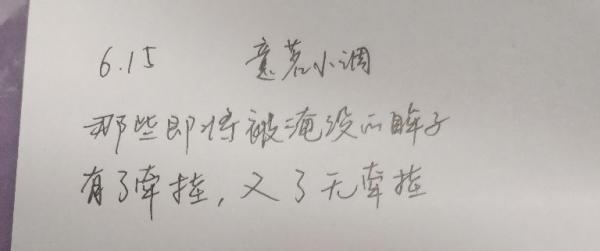 6.15 意茗小调
那些即将被淹没的眸子
有了牵挂，又了无牵挂